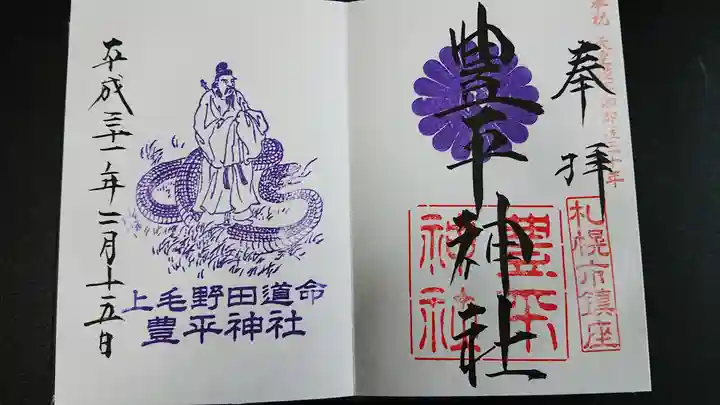 奉拝
札幌市鎮座
豊平神社
豊平神社
上毛野田道命
豊平神社
平成三十一年二月十五日